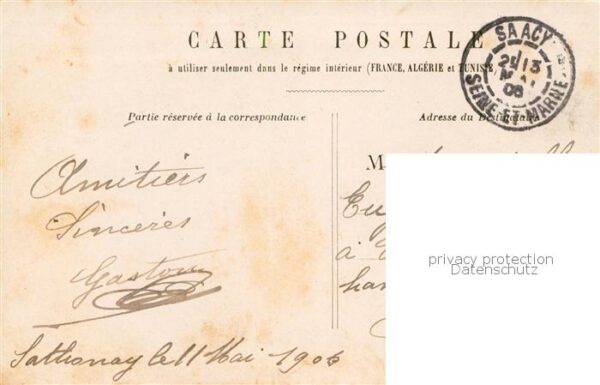 CARTE POSTALE
à utiliser seulement dans le régime intérieur (FRANCE, ALGÉRIE et TUNISIE
SAACY
2E 13
MAI
06
SEINE-ET-MARNE
Partie réservée à la correspondance
Adresse du Destinataire
M
Amitiers
Sincères
Gaston
Sathonay le 11 Mai 1906
à
privacy protection
Datenschutz